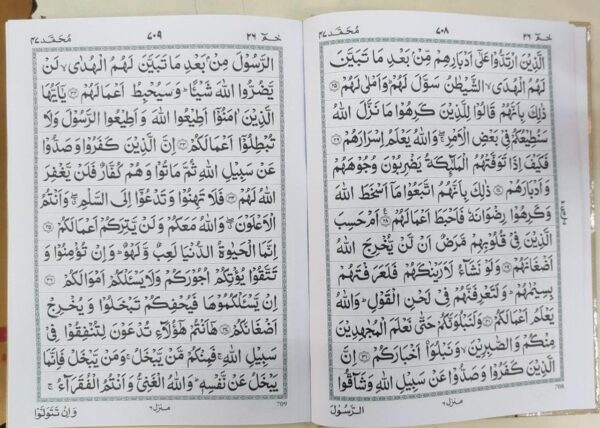 حٰمٓ ٢٦
٧٠٨
مُحَمَّد ٤٧
الَّذِيْنَ ارْتَدُّوْا عَلٰٓى اَدْبَارِهِمْ مِّنْۢ بَعْدِ مَا تَبَيَّنَ
لَهُمُ الْهُدَى ۙ الشَّيْطٰنُ سَوَّلَ لَهُمْ ؕ وَاَمْلٰى لَهُمْ ﴿٢٥﴾
ذٰلِكَ بِاَنَّهُمْ قَالُوْا لِلَّذِيْنَ كَرِهُوْا مَا نَزَّلَ اللّٰهُ
سَنُطِيْعُكُمْ فِيْ بَعْضِ الْاَمْرِ ۖۚ وَاللّٰهُ يَعْلَمُ اِسْرَارَهُمْ ﴿٢٦﴾
فَكَيْفَ اِذَا تَوَفَّتْهُمُ الْمَلٰٓئِكَةُ يَضْرِبُوْنَ وُجُوْهَهُمْ
وَاَدْبَارَهُمْ ﴿٢٧﴾ ذٰلِكَ بِاَنَّهُمُ اتَّبَعُوْا مَاۤ اَسْخَطَ اللّٰهَ
وَكَرِهُوْا رِضْوَانَهٗ فَاَحْبَطَ اَعْمَالَهُمْ ﴿٢٨﴾ اَمْ حَسِبَ
الَّذِيْنَ فِيْ قُلُوْبِهِمْ مَّرَضٌ اَنْ لَّنْ يُّخْرِجَ اللّٰهُ
اَضْغَانَهُمْ ﴿٢٩﴾ وَلَوْ نَشَآءُ لَاَرَيْنٰكَهُمْ فَلَعَرَفْتَهُمْ
بِسِيْمٰهُمْ ؕ وَلَتَعْرِفَنَّهُمْ فِيْ لَحْنِ الْقَوْلِ ؕ وَاللّٰهُ
يَعْلَمُ اَعْمَالَكُمْ ﴿٣٠﴾ وَلَنَبْلُوَنَّكُمْ حَتّٰى نَعْلَمَ الْمُجٰهِدِيْنَ
مِنْكُمْ وَالصّٰبِرِيْنَ ۙ وَنَبْلُوَا۟ اَخْبَارَكُمْ ﴿٣١﴾ اِنَّ
الَّذِيْنَ كَفَرُوْا وَصَدُّوْا عَنْ سَبِيْلِ اللّٰهِ وَشَآقُّوا
708
منزل ٦
الرَّسُوْلَ
حٰمٓ ٢٦
٧٠٩
مُحَمَّد ٤٧
الرَّسُوْلَ مِنْۢ بَعْدِ مَا تَبَيَّنَ لَهُمُ الْهُدٰى ۙ لَنْ
يَّضُرُّوا اللّٰهَ شَيْـًٔا ؕ وَسَيُحْبِطُ اَعْمَالَهُمْ ﴿٣٢﴾ يٰۤاَيُّهَا
الَّذِيْنَ اٰمَنُوْۤا اَطِيْعُوا اللّٰهَ وَاَطِيْعُوا الرَّسُوْلَ وَلَا
تُبْطِلُوْۤا اَعْمَالَكُمْ ﴿٣٣﴾ اِنَّ الَّذِيْنَ كَفَرُوْا وَصَدُّوْا
عَنْ سَبِيْلِ اللّٰهِ ثُمَّ مَاتُوْا وَهُمْ كُفَّارٌ فَلَنْ يَّغْفِرَ
اللّٰهُ لَهُمْ ﴿٣٤﴾ فَلَا تَهِنُوْا وَتَدْعُوْۤا اِلَى السَّلْمِ ۖۗ وَاَنْتُمُ
الْاَعْلَوْنَ ۖۗ وَاللّٰهُ مَعَكُمْ وَلَنْ يَّتِرَكُمْ اَعْمَالَكُمْ ﴿٣٥﴾
اِنَّمَا الْحَيٰوةُ الدُّنْيَا لَعِبٌ وَّلَهْوٌ ؕ وَاِنْ تُؤْمِنُوْا وَ
تَتَّقُوْا يُؤْتِكُمْ اُجُوْرَكُمْ وَلَا يَسْـَٔلْكُمْ اَمْوَالَكُمْ ﴿٣٦﴾
اِنْ يَّسْـَٔلْكُمُوْهَا فَيُحْفِكُمْ تَبْخَلُوْا وَيُخْرِجْ
اَضْغَانَكُمْ ﴿٣٧﴾ هٰۤاَنْتُمْ هٰۤؤُلَآءِ تُدْعَوْنَ لِتُنْفِقُوْا فِيْ
سَبِيْلِ اللّٰهِ ۚ فَمِنْكُمْ مَّنْ يَّبْخَلُ ۚ وَمَنْ يَّبْخَلْ فَاِنَّمَا
يَبْخَلُ عَنْ نَّفْسِهٖ ؕ وَاللّٰهُ الْغَنِيُّ وَاَنْتُمُ الْفُقَرَآءُ ۚ
709
منزل ٦
وَاِنْ تَتَوَلَّوْا